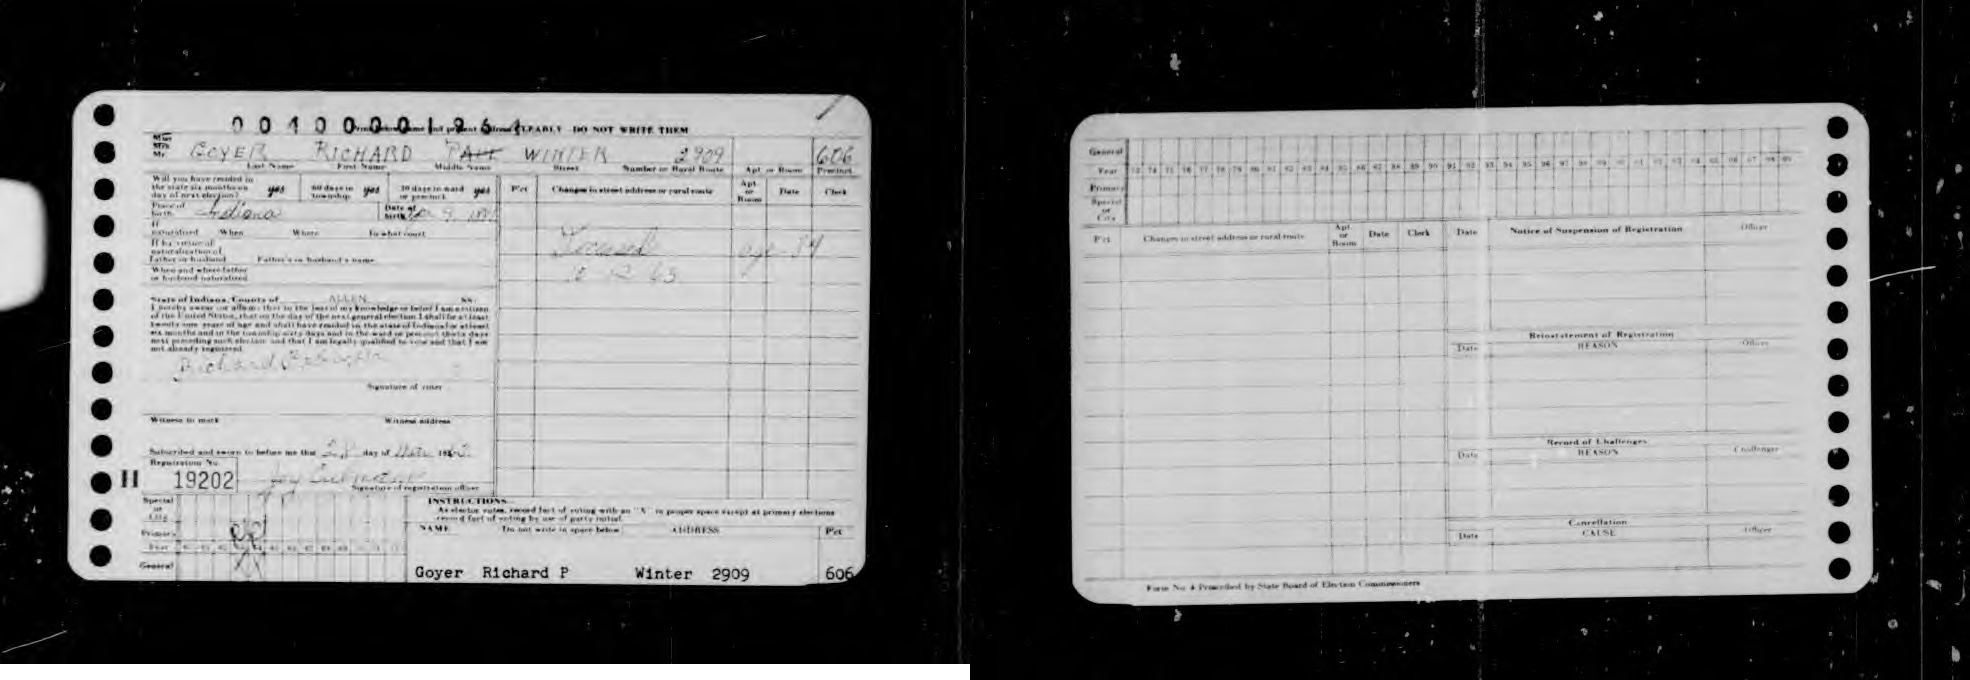 0010000 1264
Print your name and present address CLEARLY DO NOT WRITE THEM
Miss
Mrs.
Mr. GOYER RICHARD PAUL WINTER 2909 606
Last Name First Name Middle Name Street Number or Rural Route Apt. or Room Precinct
Will you have resided in the state six months on day of next election? yes 60 days in township yes 30 days in ward or precinct yes
Pct Changes in street address or rural route Apt. or Room Date Clerk
Place of birth Indiana Date of birth
If naturalized When Where In what court
If by virtue of naturalization of Father or husband Father's or husband's name
When and where father or husband naturalized
age 84
State of Indiana, County of ALLEN SS:
I hereby swear (or affirm) that to the best of my knowledge or belief I am a citizen
of the United States, that on the day of the next general election I shall be at least
twenty-one years of age and shall have resided in the state of Indiana for at least
six months and in the township sixty days and in the ward or precinct thirty days
next preceding such election and that I am legally qualified to vote and that I am
not already registered.
Richard P Goyer
Signature of voter
Witness to mark Witness address
Subscribed and sworn to before me this day of 19
Registration No.
H 19202
Signature of registration officer
INSTRUCTIONS
As elector votes, record fact of voting with an "X" in proper space except at primary elections
record fact of voting by use of party initial.
Special or City
Primary
Year
General
NAME Do not write in space below ADDRESS Pct
Goyer Richard P Winter 2909 606
General
Year 73 74 75 76 77 78 79 80 81 82 83 84 85 86 87 88 89 90 91 92 93 94 95 96 97 98 99
Primary
Special or City
Pct Changes in street address or rural route Apt. or Room Date Clerk Date Notice of Suspension of Registration Officer
Reinstatement of Registration
Date REASON Officer
Record of Challenges
Date REASON Challenger
Cancellation
Date CAUSE Officer
Form No. 4 Prescribed by State Board of Election Commissioners